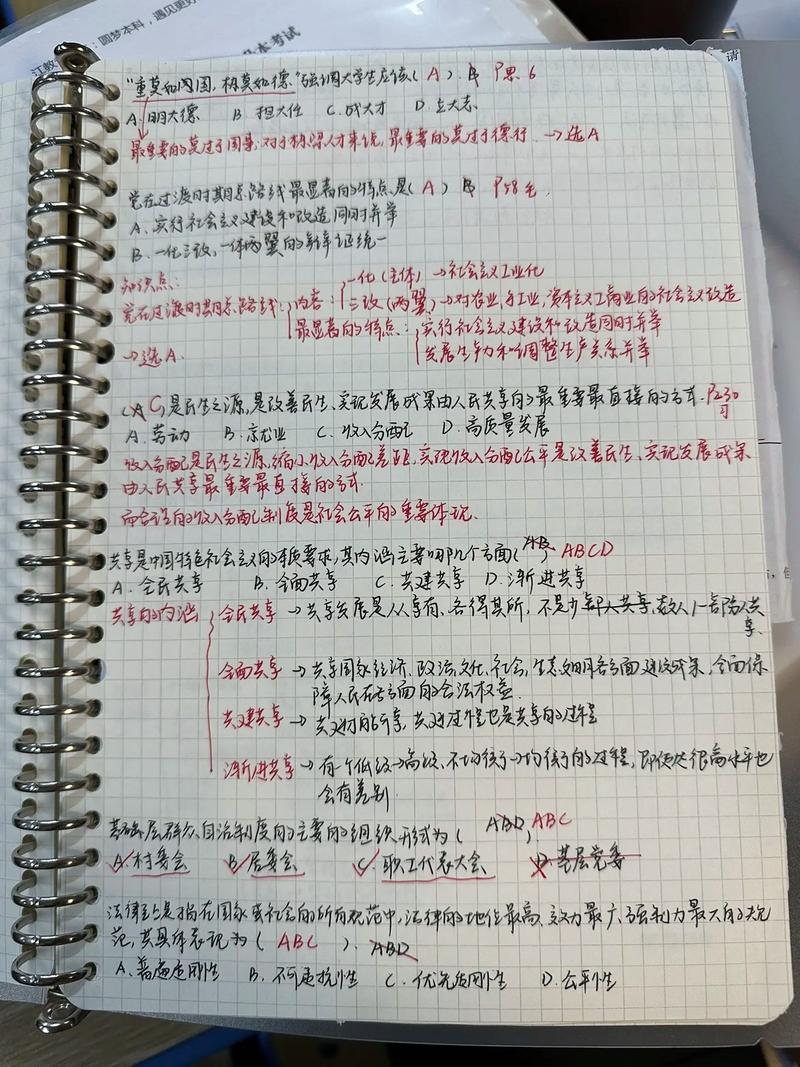 江教 圆梦本科，遇见更好
本考试
请
"重莫如国，栋莫如德"强调大学生应该（A）. B P思. 6
A.明大德 B 担大任 C.成大才 D.立大志
最重要的莫过于国家，对于栋梁人才来说，最重要的莫过于德行 →选A
党在过渡时期总路线最显著的特点是（A）B P58毛.
A.实行社会主义建设和改造同时并举
B.一化三改，一体两翼的辩证统一
知识点：
党在过渡时期总路线： 内容： 一化（主体）→社会主义工业化
三改（两翼）→对农业，手工业，资本主义工商业的社会主义改造
最显著的特点： 实行社会主义建设和改造同时并举
发展生产力和调整生产关系并举
→选A.
（A C）是民生之源，是改善民生、实现发展成果由人民共享的最重要最直接的方式. P230习
A.劳动 B.就业 C.收入分配 D.高质量发展
收入分配是民生之源，缩小收入分配差距，实现收入分配公平是改善民生、实现发展成果
由人民共享最重要最直接的方式.
而合理的收入分配制度是社会公平的重要体现.
共享是中国特色社会主义的本质要求，其内涵主要哪几个方面（AB） ABCD
A.全民共享 B.全面共享 C.共建共享 D.渐进共享
共享的内涵 全民共享 →共享发展是人人享有、各得其所，不是少部分人共享，一部分人共
享.
全面共享 →共享国家经济、政治、文化、社会，生态文明各方面建设成果，全面保
障人民在各方面的合法权益.
共建共享 →共建才能共享，共建过程也是共享的过程
渐进共享 →有一个低级→高级、不均衡→均衡的过程，即使达很高水平也
会有差别.
基础层群众自治制度的主要的组织形式为（ ABD，ABC
A.村委会 B.居委会 C.职工代表大会 D.基层党委
法律至上是指在国家或社会的所有规范中，法律的地位最高、效力最广、强制力最大的规
范，其具体表现为（ABC）. ABD
A.普遍适用性 B.不可违抗性 C.优先适用性 D.公平性